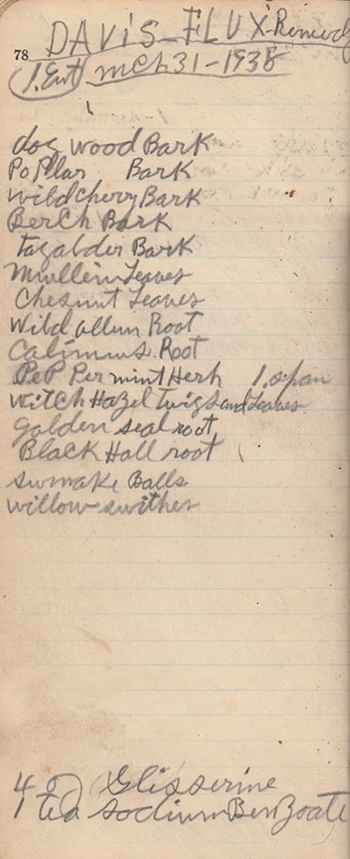 78 DAViS FLUX Remedy
1. Ent mch 31-1938
dog wood Bark
PoPllar Bark
wild cherry Bark
BerCh Bark
tagalder Bark
Mullein Leaves
Chesnut Leaves
Wild allum Root
Calimus Root
PeP Permint Herh 1. span
witCH Hazel twigs and Leaves
golden seal root
BlaCk Hall root
sumake Balls
willow swithes
4 Glisserine
1 sodium BenZoate